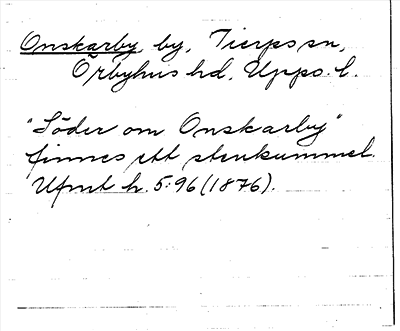 Onskarby by, Tierps sn,
Örbyhus hd, Upps. l.
"Söder om Onskarby"
finnes ett stenkummel.
Ufmt h. 5:96 (1876).